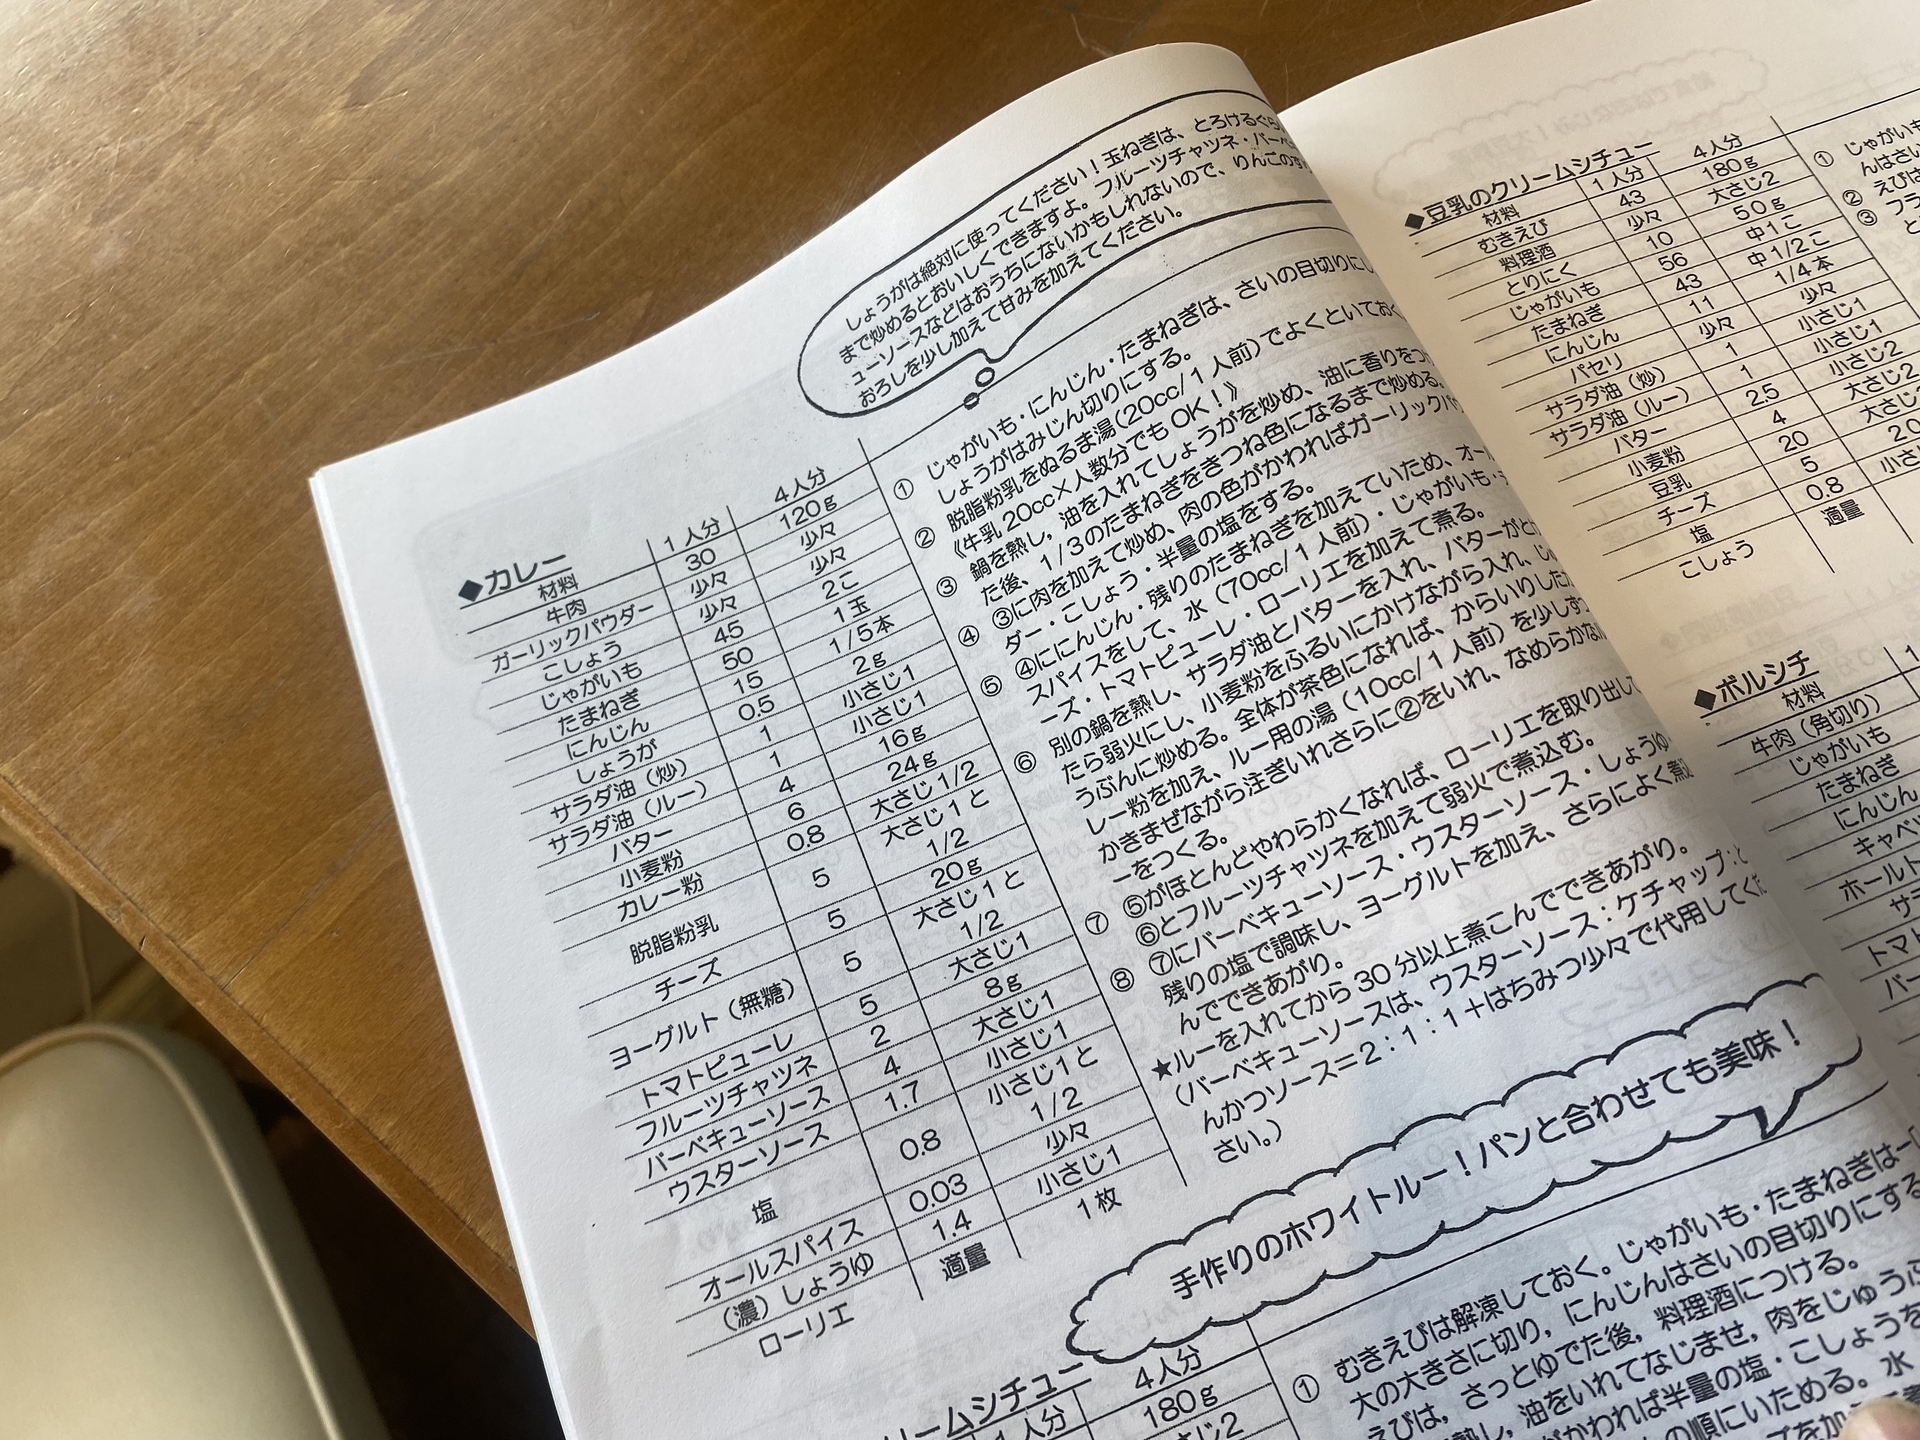 しょうがは絶対に使ってください！玉ねぎは、とろけるぐらい
まで炒めるとおいしくできますよ。フルーツチャツネ・バーベ
ューソースなどはおうちにないかもしれないので、りんごのす
おろしを少し加えて甘みを加えてください。
◆カレー
材料 1人分 4人分
牛肉 30 120g
ガーリックパウダー 少々 少々
こしょう 少々 少々
じゃがいも 45 2こ
たまねぎ 50 1玉
にんじん 15 1/5本
しょうが 0.5 2g
サラダ油（炒） 1 小さじ1
サラダ油（ルー） 1 小さじ1
バター 4 16g
小麦粉 6 24g
カレー粉 0.8 大さじ1/2
脱脂粉乳 5 大さじ1と
1/2
チーズ 5 20g
ヨーグルト（無糖） 5 大さじ1と
1/2
トマトピューレ 5 大さじ1
フルーツチャツネ 2 8g
バーベキューソース 4 大さじ1
ウスターソース 1.7 小さじ1
塩 0.8 小さじ1と
1/2
オールスパイス 0.03 少々
（濃）しょうゆ 1.4 小さじ1
ローリエ 適量 1枚
① じゃがいも・にんじん・たまねぎは、さいの目切りにし
しょうがはみじん切りにする。
② 脱脂粉乳をぬるま湯(20cc/1人前)でよくといておく
《牛乳20cc×人数分でもOK！》
③ 鍋を熱し，油を入れてしょうがを炒め、油に香りをつ
た後、1/3のたまねぎをきつね色になるまで炒める。
④ ③に肉を加えて炒め、肉の色がかわればガーリックパウ
ダー・こしょう・半量の塩をする。
⑤ ④ににんじん・残りのたまねぎを加えていため、オール
スパイスをして、水（70cc/1人前）・じゃがいも・チ
ーズ・トマトピューレ・ローリエを加えて煮る。
⑥ 別の鍋を熱し、サラダ油とバターを入れ、バターがとけ
たら弱火にし、小麦粉をふるいにかけながら入れ、じゅ
うぶんに炒める。全体が茶色になれば、からいりしたカ
レー粉を加え、ルー用の湯（10cc/1人前）を少しずつ
かきまぜながら注ぎいれさらに②をいれ、なめらかなル
ーをつくる。
⑦ ⑤がほとんどやわらかくなれば、ローリエを取り出して
⑥とフルーツチャツネを加えて弱火で煮込む。
⑧ ⑦にバーベキューソース・ウスターソース・しょうゆ・
残りの塩で調味し、ヨーグルトを加え、さらによく煮込
んでできあがり。
★ルーを入れてから30分以上煮こんでできあがり。
（バーベキューソースは、ウスターソース：ケチャップ：と
んかつソース＝2：1：1＋はちみつ少々で代用してくだ
さい。）
手作りのホワイトルー！パンと合わせても美味！
リームシチュー
1人分 4人分
180g
さじ2
① むきえびは解凍しておく。じゃがいも・たまねぎは一
大の大きさに切り，にんじんはさいの目切りにする
えびは，さっとゆでた後，料理酒につける。
熱し，油をいれてなじませ，肉をじゅうぶ
がかわれば半量の塩・こしょうを
の順にいためる。水
◆豆乳のクリームシチュー
材料 1人分 4人分
むきえび 43 180g
料理酒 少々 大さじ2
とりにく 10 50g
じゃがいも 56 中1こ
たまねぎ 43 中1/2こ
にんじん 11 1/4本
パセリ 少々 少々
サラダ油（炒） 1 小さじ1
サラダ油（ルー） 1 小さじ1
バター 2.5 小さじ2
小麦粉 4 大さじ2
豆乳 20 大さじ
チーズ 5 20
塩 0.8 小さ
こしょう 適量
① じゃがいも
んはさい
② えびは
③ フラ
と
◆ボルシチ
材料 1
牛肉（角切り）
じゃがいも
たまねぎ
にんじん
キャベツ
ホールト
サラ
トマト
バー